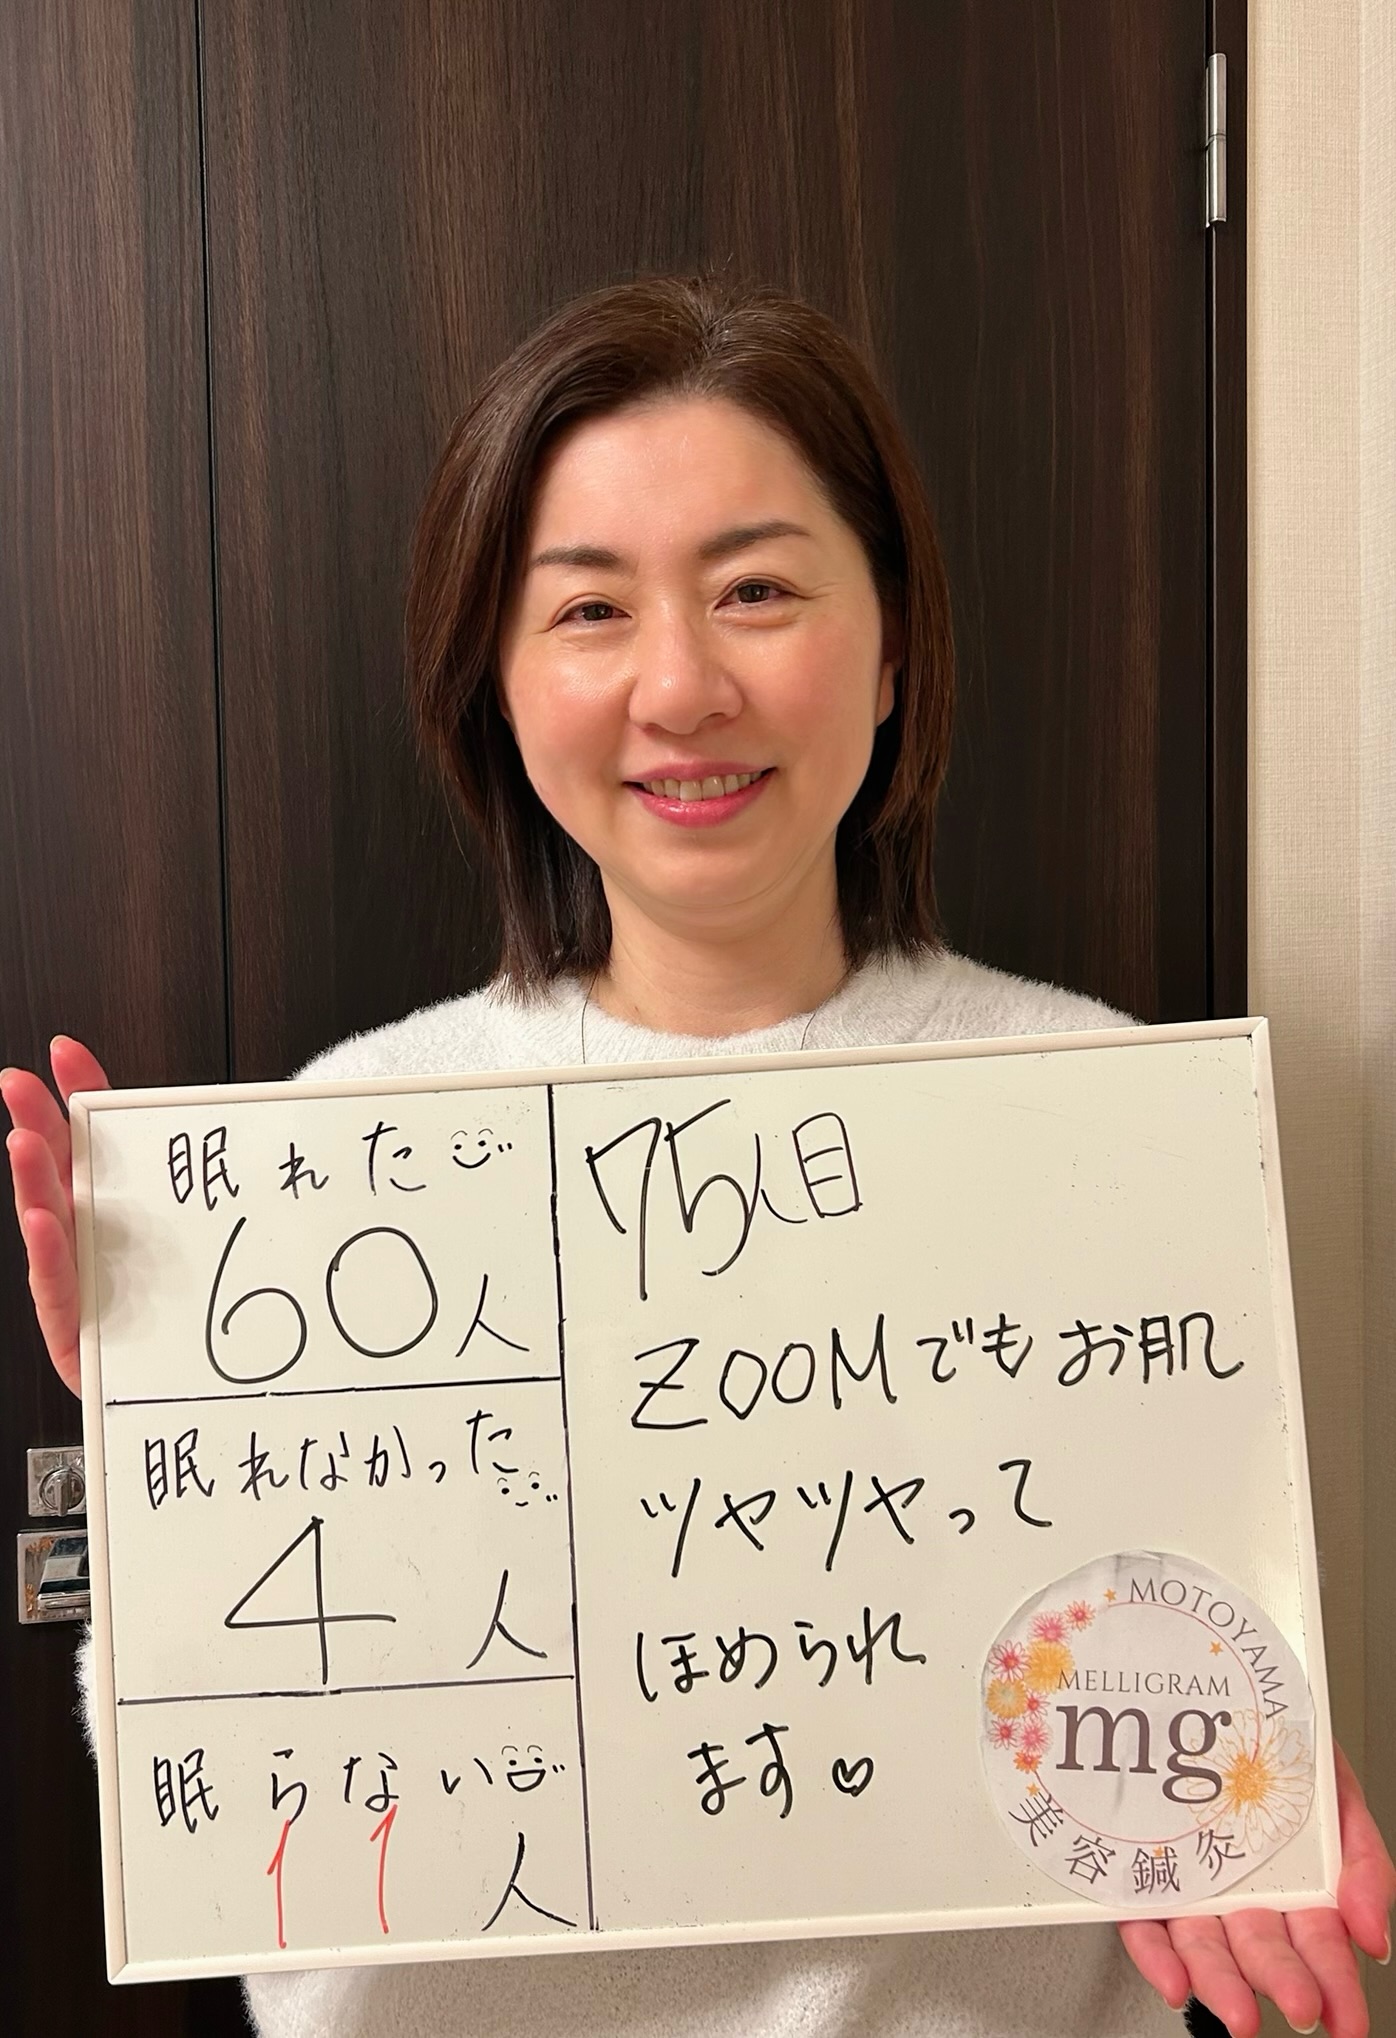 眠れた
60人
眠れなかった
4人
眠らない
11人
75人目
ZOOMでもお肌
ツヤツヤって
ほめられ
ます♡
MOTOYAMA
MELLIGRAM
mg
美容鍼灸